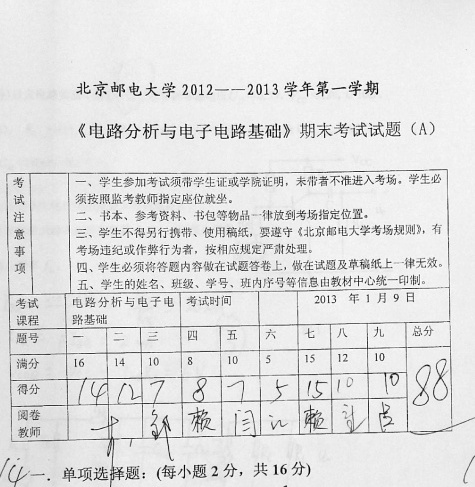 北京邮电大学 2012——2013 学年第一学期
《电路分析与电子电路基础》期末考试试题（A）
考试注意事项
一、学生参加考试须带学生证或学院证明，未带者不准进入考场。学生必
须按照监考教师指定座位就坐。
二、书本、参考资料、书包等物品一律放到考场指定位置。
三、学生不得另行携带、使用稿纸，要遵守《北京邮电大学考场规则》，有
考场违纪或作弊行为者，按相应规定严肃处理。
四、学生必须将答题内容做在试题答卷上，做在试题及草稿纸上一律无效。
五、学生的姓名、班级、学号、班内序号等信息由教材中心统一印制。
考试课程 电路分析与电子电路基础 考试时间 2013 年 1 月 9 日
题号 一 二 三 四 五 六 七 八 九 总分
满分 16 14 10 8 10 5 15 12 10
得分 14 12 7 8 7 5 15 10 10 88
阅卷教师 赖 闫 赖
14 一．单项选择题：(每小题 2 分，共 16 分)